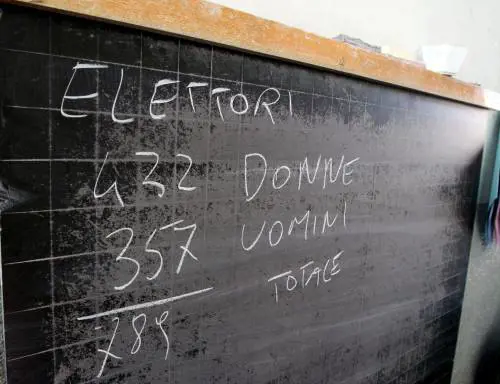 ELETTORI
432 DONNE
357 UOMINI
789 TOTALE